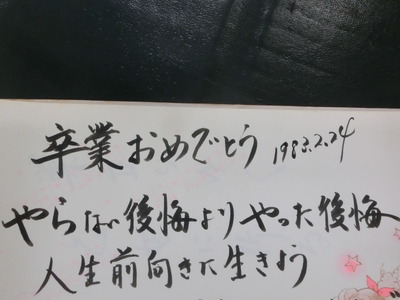 卒業おめでとう 1983.2.24
やらない後悔よりやった後悔
人生前向きに生きよう